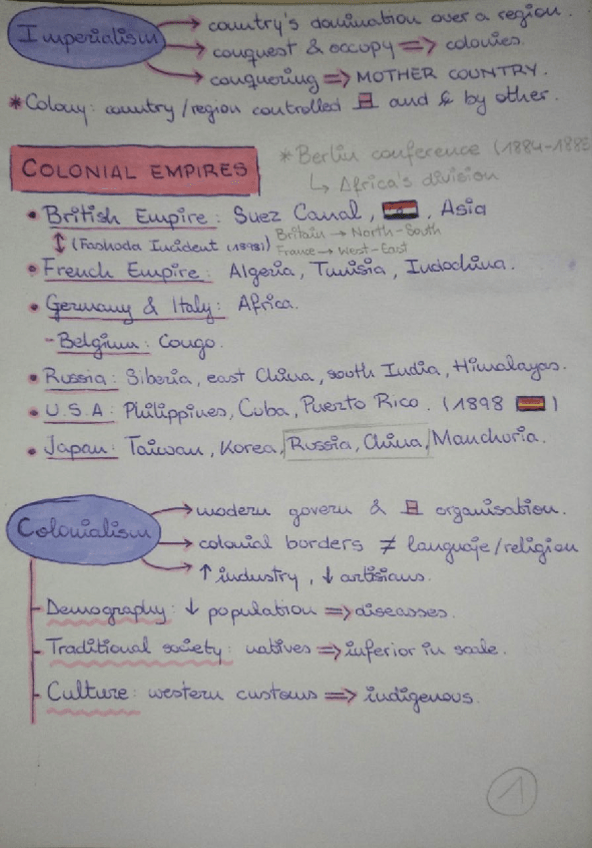 Imperialism
→ country's domination over a region.
→ conquest & occupy ⇒ colonies.
→ conquering ⇒ MOTHER COUNTRY.
*Colony: country/region controlled and & by other.
COLONIAL EMPIRES
*Berlin conference (1884-1885
↳ Africa's division
• British Empire: Suez Canal, , Asia
↕ (Fashoda Incident (1898) Britain → North-South
France → West-East
• French Empire: Algeria, Tunisia, Indochina.
• Germany & Italy: Africa.
- Belgium: Congo.
• Russia: Siberia, east China, south India, Himalayas.
• U.S.A: Philippines, Cuba, Puerto Rico. (1898 )
• Japan: Taiwan, Korea, Russia, China, Manchuria.
Colonialism
→ modern govern & organisation.
→ colonial borders ≠ languaje/religion
→ ↑ industry, ↓ artisians.
- Demography: ↓ population ⇒ diseasses.
- Traditional society: natives ⇒ inferior in scale.
- Culture: western customs ⇒ indigenous.
1